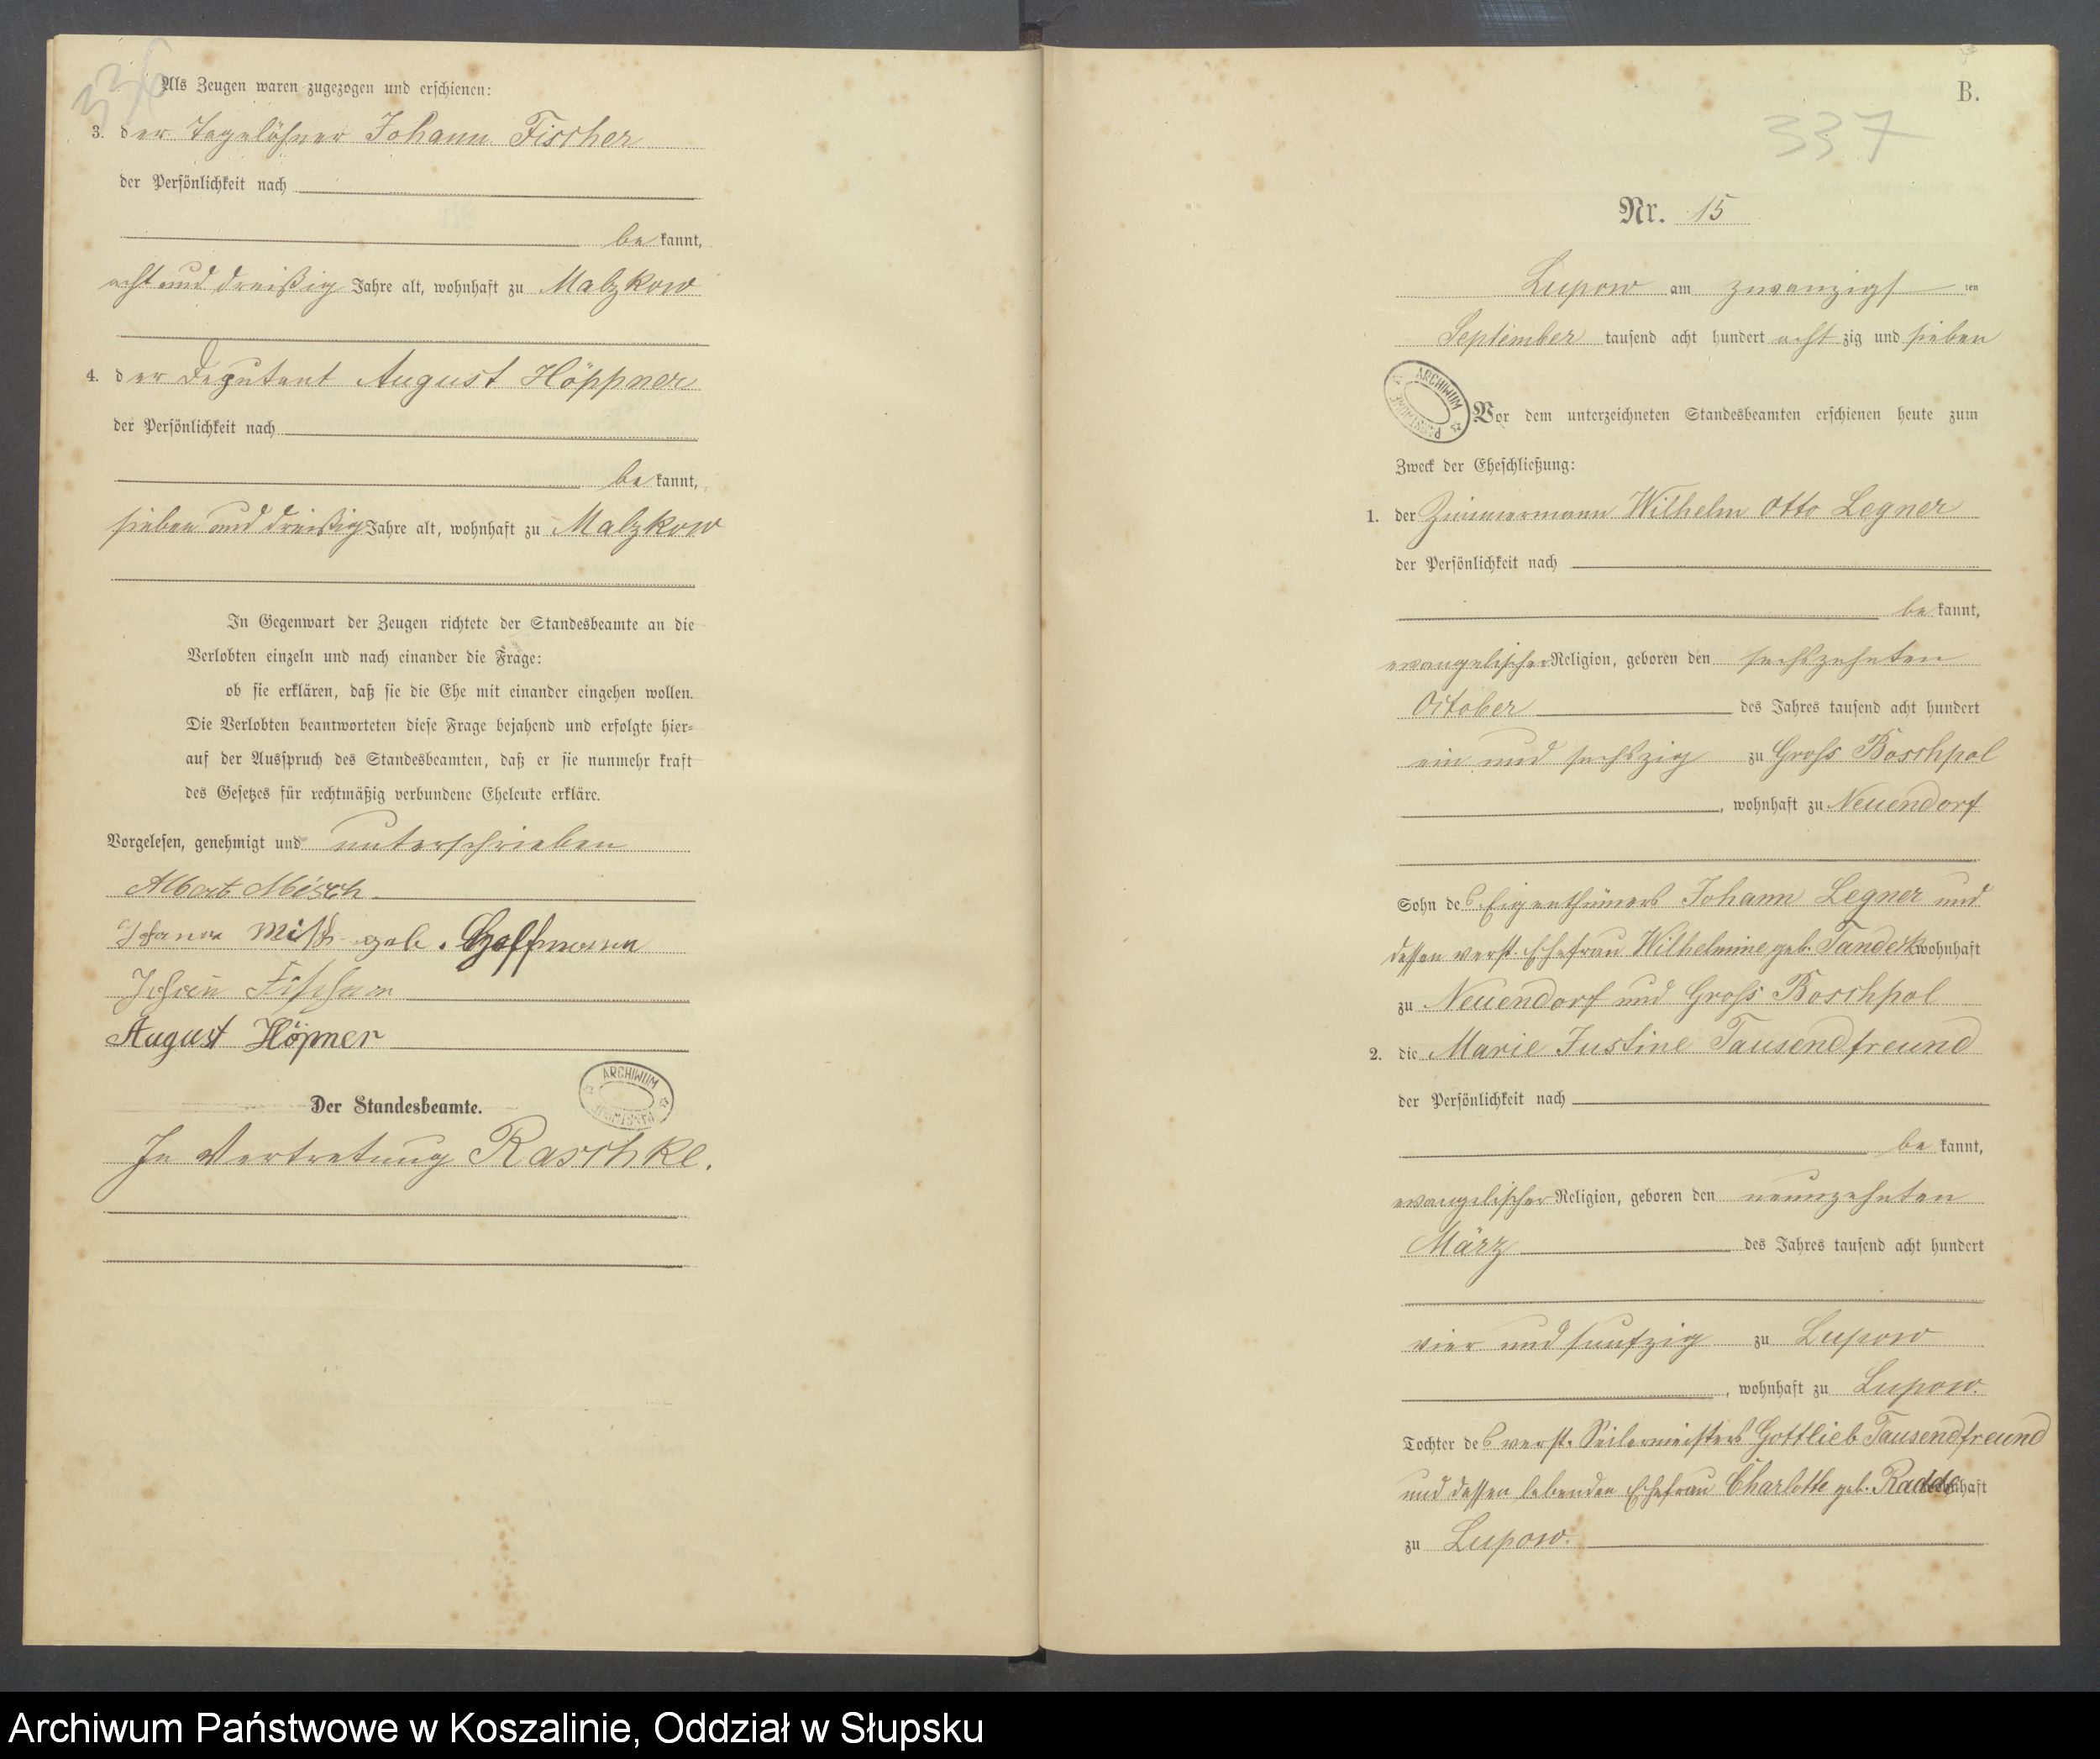 336
Als Zeugen waren zugezogen und erschienen:
3. der Tagelöhner Johann Fischer
der Persönlichkeit nach
be kannt,
acht und dreißig Jahre alt, wohnhaft zu Malzkow
4. der Deputant August Höppner
der Persönlichkeit nach
be kannt,
sieben und dreißig Jahre alt, wohnhaft zu Malzkow
In Gegenwart der Zeugen richtete der Standesbeamte an die
Verlobten einzeln und nach einander die Frage:
ob sie erklären, daß sie die Ehe mit einander eingehen wollen.
Die Verlobten beantworteten diese Frage bejahend und erfolgte hier=
auf der Ausspruch des Standesbeamten, daß er sie nunmehr kraft
des Gesetzes für rechtmäßig verbundene Eheleute erkläre.
Vorgelesen, genehmigt und unterschrieben
Albert Misch
geb. Hoffmann
Johann Fischer
August Höpner
ARCHIWUM PAŃSTWOWE
Der Standesbeamte.
In Vertretung Raschke.
B.
337
Nr. 15
Lupow am zwanzigsten
September tausend acht hundert acht zig und sieben
ARCHIWUM PAŃSTWOWE
Vor dem unterzeichneten Standesbeamten erschienen heute zum
Zweck der Eheschließung:
1. der Zimmermann Wilhelm Otto Legner
der Persönlichkeit nach
be kannt,
evangelischer Religion, geboren den sechszehnten
October des Jahres tausend acht hundert
ein und sechszig zu Groß Boschpol
, wohnhaft zu Neuendorf
Sohn des Eigenthümers Johann Legner und
dessen verst. Ehefrau Wilhelmine geb. Tandeck wohnhaft
zu Neuendorf und Groß Boschpol
2. die Marie Justine Tausendfreund
der Persönlichkeit nach
be kannt,
evangelischer Religion, geboren den neunzehnten
März des Jahres tausend acht hundert
vier und funfzig zu Lupow
, wohnhaft zu Lupow.
Tochter des verst. Seilermeisters Gottlieb Tausendfreund
und dessen lebenden Ehefrau Charlotte geb. Radde wohnhaft
zu Lupow.
Archiwum Państwowe w Koszalinie, Oddział w Słupsku